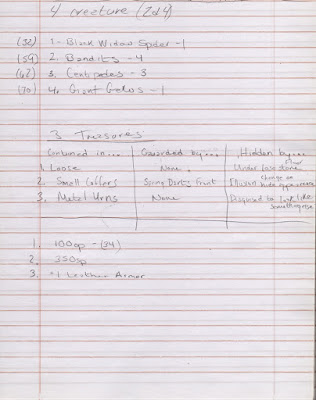 4 creature (2d4)
(32) 1. Black Widow Spider - 1
(59) 2. Bandits - 4
(62) 3. Centipedes - 3
(70) 4. Giant Geckos - 1
3 Treasures
Contained in... Guarded by... Hidden by...
1. Loose None Under loose stone floor
2. Small Coffers Spring Darts, Front Illusion change or hide appearance
3. Metal Urns None Disguised to look like something else
1. 100gp - (34)
2. 350sp
3. +1 Leather Armor